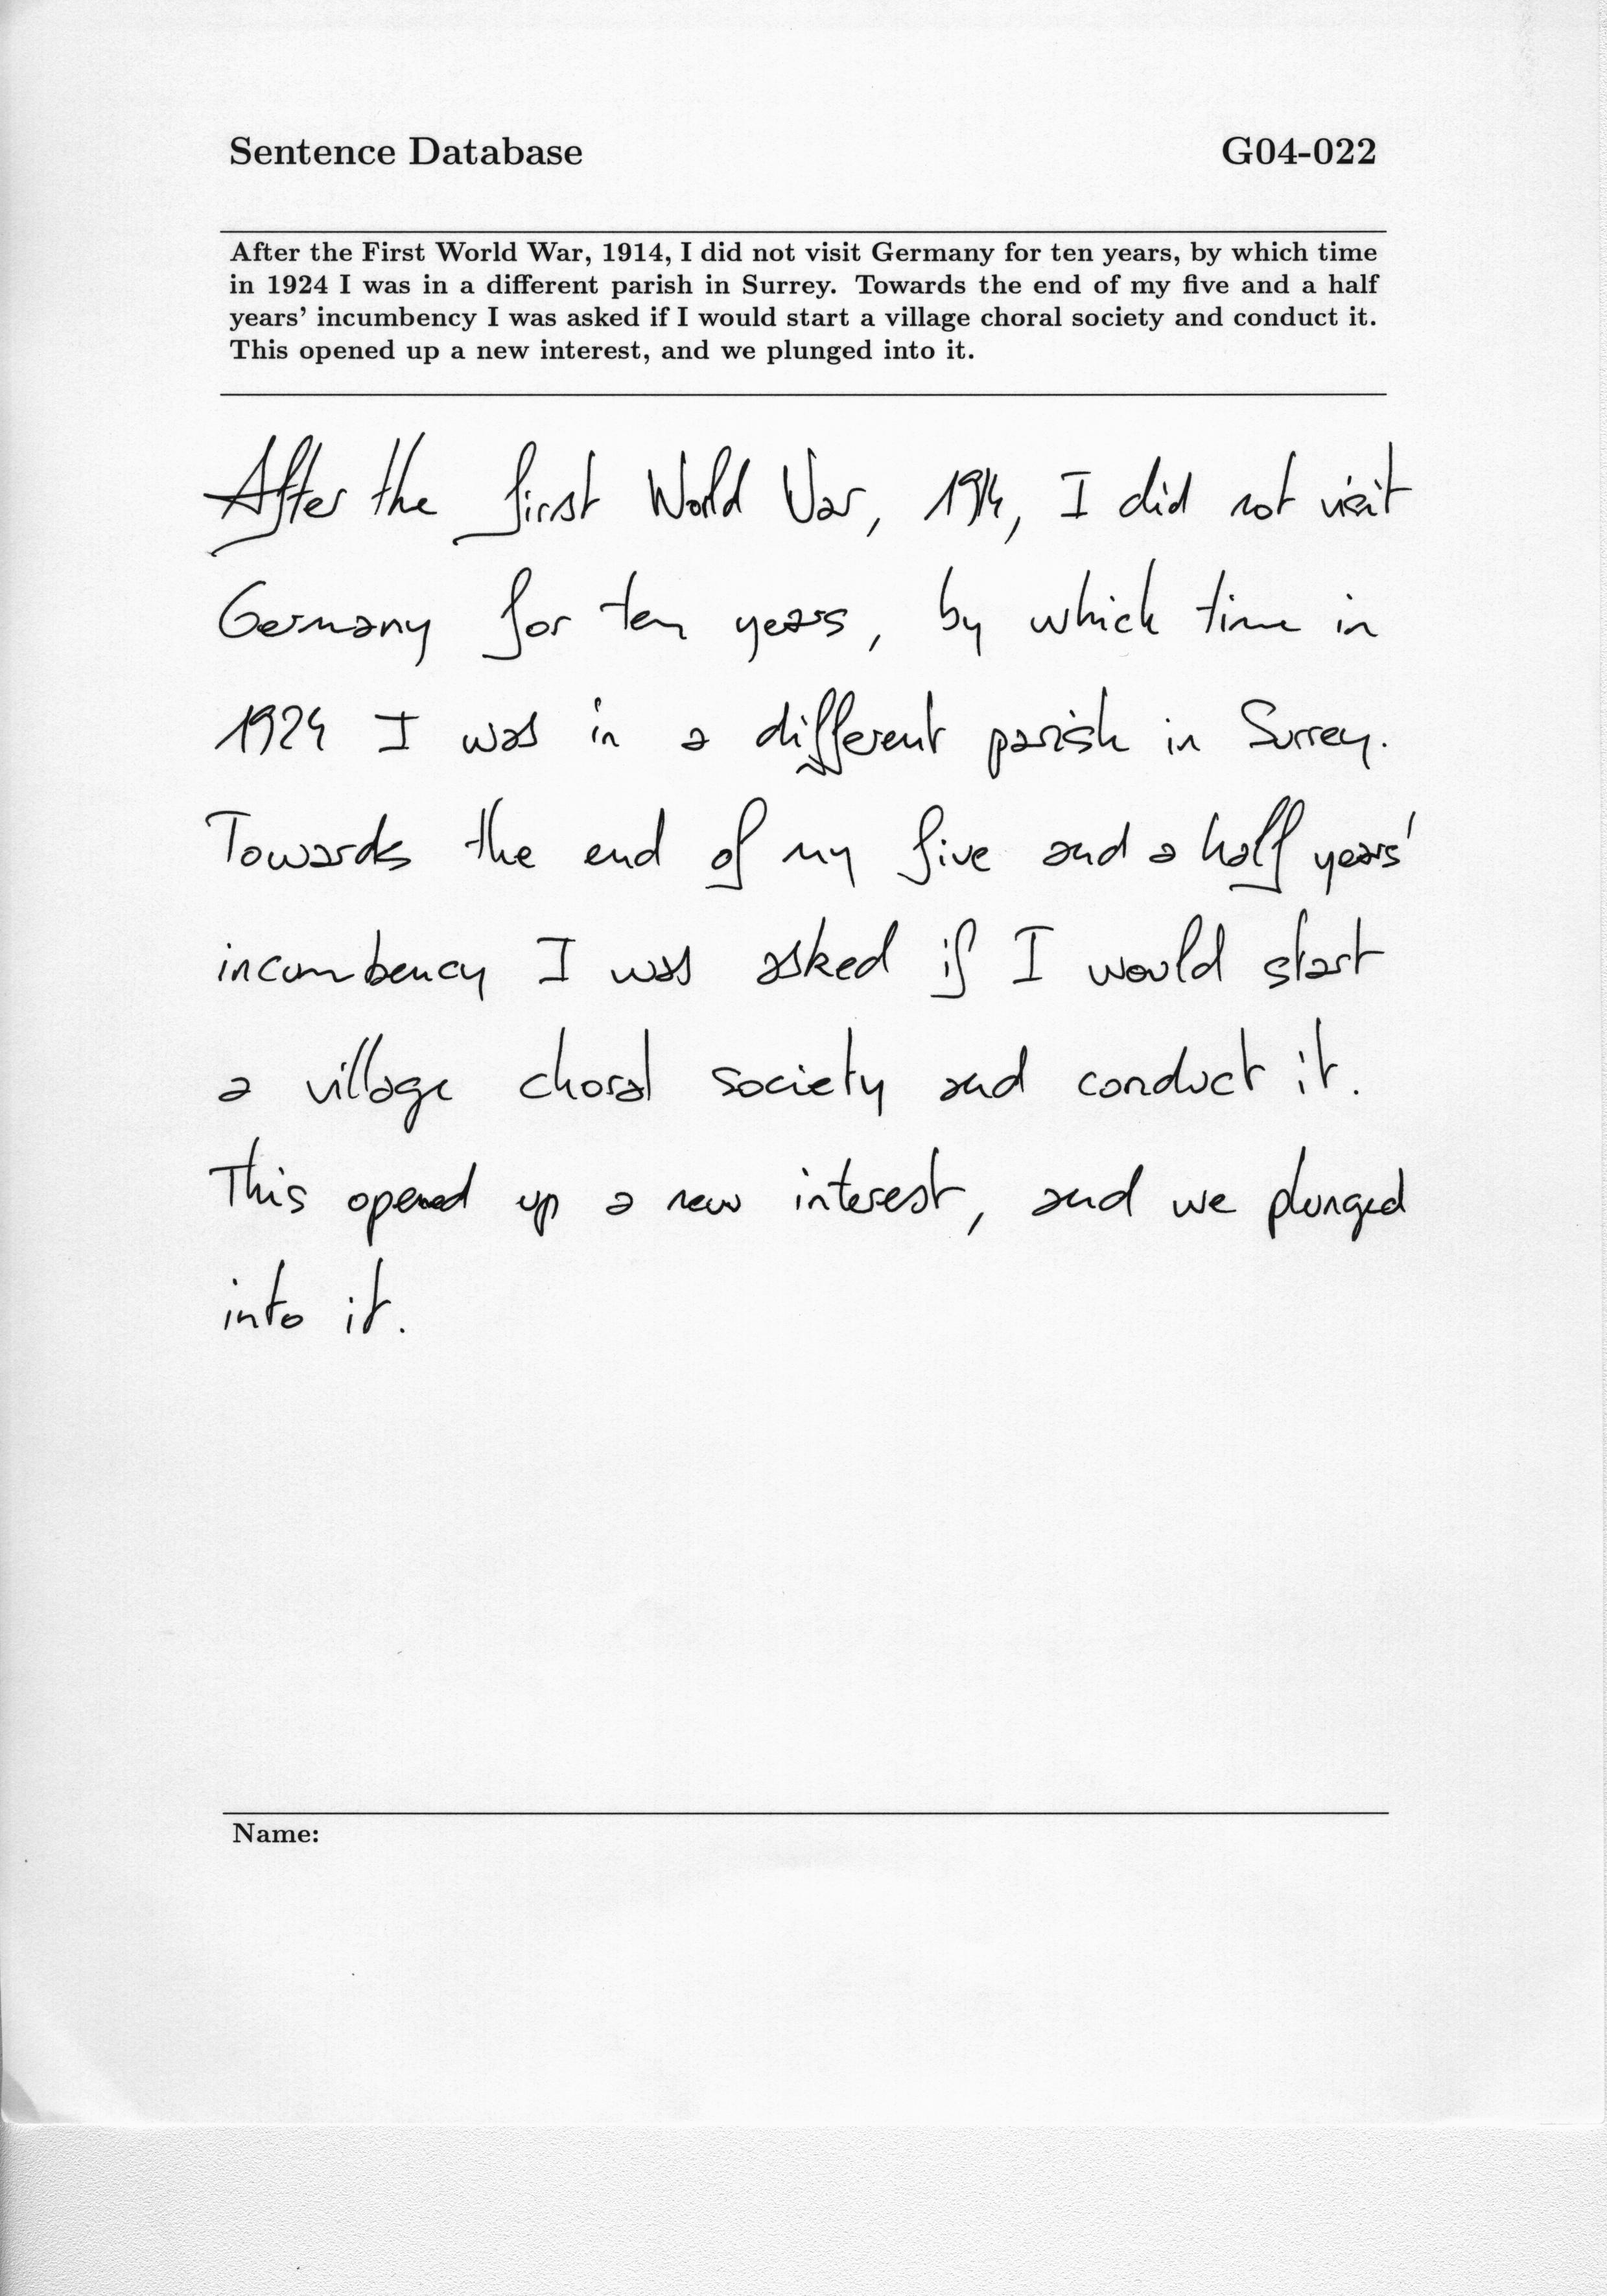 Sentence Database G04-022
After the First World War, 1914, I did not visit Germany for ten years, by which time
in 1924 I was in a different parish in Surrey. Towards the end of my five and a half
years' incumbency I was asked if I would start a village choral society and conduct it.
This opened up a new interest, and we plunged into it.
After the first World War, 1914, I did not visit
Germany for ten years, by which time in
1924 I was in a different parish in Surrey.
Towards the end of my five and a half years'
incumbency I was asked if I would start
a village choral society and conduct it.
This opened up a new interest, and we plunged
into it.
Name: